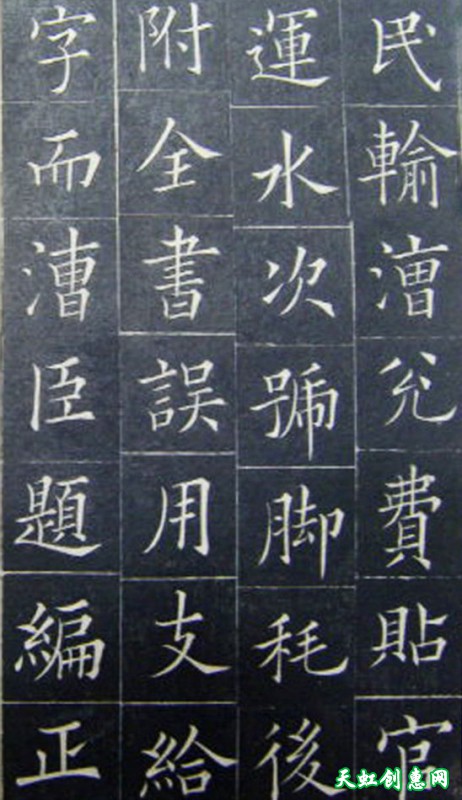 民輸漕兊費貼官
運水次號脚秏後
附全書誤用支給
字而漕臣題編正
天虹创惠网